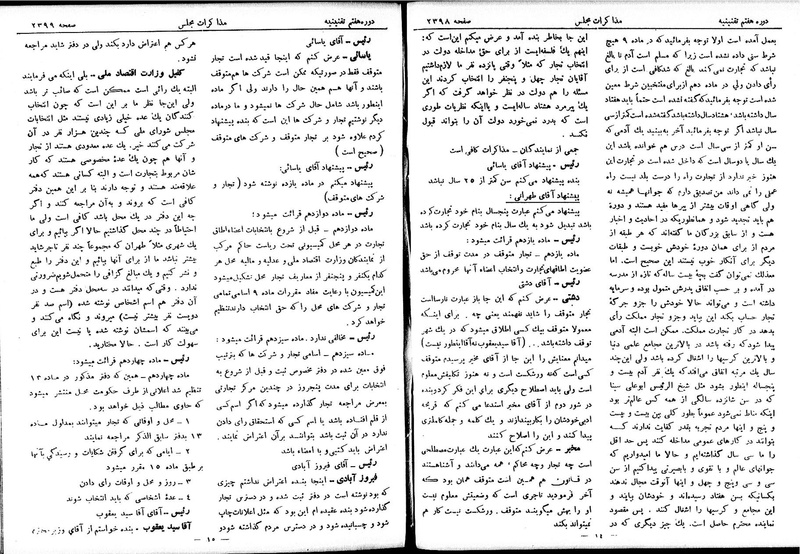 دوره هفتم تقنینیه
مذاکرات مجلس
صفحه ۲۳۹۸
بعمل آمده است اولا توجه بفرمائید که در ماده ۹ هیچ
شرط سنی داده نشده است زیرا که مسلم است آدم تا بالغ
نباشد که تجارت نمی کند بالغ که شد کافی است از برای
رأی دادن ولی در ماده دهم از برای منتخبین شرط معین
شده است توجه بفرمائید که گفته شده است حتماً باید هفتاد
سال داشته باشد
سال نباشد اگر توجه بفرمائید آخر به بینید یک آدمی که
سن او کمتر از سی سال است درس هم خوانده باشد این
یک سال یا دو سال است که داخل شده است در تجارت این
هنوز خبر ندارد از تجارت راه را درست بلد نیست راه
عملی را نمی داند من تصدیق دارم که جوانها همیشه نه
ولی گاهی اوقات بیشتر از پیرها مفید هستند و دورهٔ
هم باید تجدید شود و همانطوریکه در احادیث و اخبار
هست و از سابق بزرگان ما گفته‌اند که هر طبقه از
مردم از برای همان دورهٔ خودش خوبست و طبقات
دیگر برای آنکار خوب نیستند این صحیح است. اما
معذلک نمی‌توان گفت بچهٔ بیست ساله که تازه از مدرسه
در آمده و بر حسب اتفاق پدرش متمول بوده و سرمایه
داشته است و می‌تواند حالا خودش را جزو جرگهٔ
تجار حساب بکند این بیاید وجزو تجار مملکت رأی
بدهد در کار تجارت مملکت. ممکن است البته آدمی
پیدا شود که رفته باشد در بالاترین مجامع علمی دنیا
و بالاترین کرسیها را اشغال کرده باشد ولی این چند
سال یک مرتبه اتفاق می‌افتد که یک نفر آدم بیست و
پنجساله اینطور بشود مثل شیخ الرئیس ابوعلی سینا
که در سن شانزده سالگی از همه کس عالم‌تر بود
اینکه مناط نمی‌شود عموماً بطور کلی بین بیست و بیست
و پنج و اینها مردم تجربه بقدر کفایت ندارند که
بتوانند در کارهای عمومی مداخله کنند پس حد اقل
را ما سی سال گذاشته‌ایم و حالا ما امیدواریم که
جوانهای عالم و با تقوی و بابصیرتی پیدا کنیم از سن
سی و سی وپنج و چهل و اینها آنوقت مجال ندهند
بکسانیکه بسن هفتاد رسیده‌اند و خودشان بیایند و
این مجامع و کرسیها را اشغال کنند. پس مقصود
نماینده محترم حاصل است. یک چیز دیگری که در
این جا بخاطر بنده آمد و عرض میکنم این است که:
اینهم یک فلسفه‌ایست از برای حق مداخله دولت در
انتخاب تجار که مثلا وقتی پانزده نفر ما لازم داشتیم
آقایان تجار چهل و پنج نفر را انتخاب کردند این
مسئله را هم دولت در نظر خواهد گرفت که اگر
یک پیرمرد هفتاد ساله‌ایست و یا اینکه نظریات طوری
است که بدرد نمی‌خورد دولت آن را بتواند قبول
نکند.
جمعی از نمایندگان - مذاکرات کافی است
رئیس - پیشنهاد آقای یاسائی
بنده پیشنهاد می‌کنم سن کمتر از ۲۵ سال نباشد
پیشنهاد آقای طهرانی:
پیشنهاد می‌کنم عبارت پنجسال بنام خود تجارت کرده
باشد تبدیل شود به یک سال بنام خود تجارت کرده باشد
رئیس - ماده یازدهم قرائت میشود:
ماده یازدهم - تجار متوقف در مدت توقف از حق
عضویت اطاقهای تجارت و انتخاب اعضاء آنها محروم می‌باشد
رئیس - آقای دشتی
دشتی - عرض کنم که این جا باز عبارت نارساست
تجار متوقف را شاید نفهمند یعنی چه. برای اینکه
معمولا متوقف بیک کسی اطلاق میشود که در یک شهر
توقف داشته باشد... (آقا سید یعقوب نه آقا اینطور نیست)
میدانم معنایش را این جا از آقای مخبر پرسیدم متوقف
کسی است که نه ورشکست است و نه هنوز تکلیفش معلوم
است ولی باید اصطلاح دیگری برای این فکر کرد و بنده
در شور دوم از آقای مخبر استدعا می کنم که قریحه
ادبی خودشان را بکار بیندازند و یک کلمه و جمله کاملتری
پیدا کنند و این را اصلاح کنند
مخبر - عرض کنم که این عبارت یک عبارت مصطلحی
است چه تجار وچه محاکم، همه می‌دانند و آشنا هستند
در قانون هم همین است متوقف همان بود که
آخر فرمودید تاجری است که وضعیتش معلوم نیست
او را بهش میگویند متوقف. ورشکست نیست کار هم
نمیتواند بکند
۱٤
دوره هفتم تقنینیه
مذاکرات مجلس
صفحه ۲۳۹۹
رئیس - آقای یاسائی
یاسائی - عرض کنم که اینجا قید شده است تجار
متوقف فقط در صورتیکه ممکن است شرکت ها هم متوقف
باشند و آنها هم همین حال را دارند ولی اگر ماده
اینطور باشد شامل حال شرکت ها نمیشود و ما در ماده
دیگر نوشتیم تجار و شرکت ها این است که بنده پیشنهاد
کردم علاوه شود بر تجار متوقف و شرکت های متوقف
(صحیح است)
رئیس - پیشنهاد آقای یاسائی:
پیشنهاد میکنم در ماده یازده نوشته شود (تجار و
شرکت های متوقف)
رئیس - ماده دوازدهم قرائت میشود:
ماده دوازدهم - قبل از شروع بانتخابات اعضاء اطاق
تجارت در هر محل کمیسیونی تحت ریاست حاکم مرکب
از نمایندگان وزارت اقتصاد ملی و عدلیه و مالیه محل هر
کدام یکنفر و پنجنفر از معاریف تجار محل تشکیل میشود
این کمیسیون با رعایت مفاد مقررات ماده ۹ اسامی تمامی
تجار و شرکت های محل را که حق انتخاب دارند تنظیم
خواهد کرد.
رئیس - مخالفی ندارد. ماده سیزدهم قرائت میشود:
ماده سیزدهم - اسامی تجار و شرکت ها که بترتیب
فوق معین شده در دفتر مخصوص ثبت و قبل از شروع به
انتخابات برای مدت پنجروز در چندین مرکز تجارتی
بمعرض مراجعه تجار گذارده میشود که اگر اسم کسی
از قلم افتاده باشد یا اسم کسی که استحقاق رأی دادن
ندارد در آن ثبت باشد بتوانند بر آن اعتراض نمایند.
اعتراض باید کتبی و با امضاء باشد
رئیس - آقای فیروز آبادی
فیروز آبادی - اینجا بنده اعتراض نداشتم چیزی
که بود نوشته است در دفتر ثبت شده و در دسترس تجار
گذارده شود بنده عقیده‌ام این بود که مثل اعلانات چاپ
شود و چسبانیده شود و در دسترس مردم گذاشته شود و
هر کس هم اعتراض دارد بکند ولی در دفتر شاید مراجعه
نشود.
کفیل وزارت اقتصاد ملی - بلی اینکه می فرمایند
البته یک رائی است ممکن است که صائب تر باشد
ولی این جا نظر ما بر این است که چون انتخاب
کنندگان یک عده خیلی زیادی نیستند مثل انتخابات
مجلس شورای ملی که چندین هزار نفر در آن
شرکت می کنند خیر. یک عده معدودی هستند از تجار
و آنها هم چون یک عدهٔ مخصوصی هستند که کار
شان مربوط بتجارت است و البته کسانی هستند که همه
علاقه‌مند هستند و توجه دارند بنا بر این همین دفتر
کافی است که بروند و به‌آن مراجعه کنند و اگر
چه این دفتر در یک محل باشد کافی است ولی ما
احتیاطاً در چند محل گذاشتیم حالا اگر بیائیم و برای
یک شهری مثلا طهران که مجموعاً چند نفر تاجر شاید
بیشتر نباشد ما از برای آنها بیائیم و این دفتر را طبع
و نشر کنیم و یک مبالغ گزافی را متحمل شویم ضرورتی
ندارد. وقتی که میدانند در سه محل دفتر هست و در
آن دفتر هم اسم اشخاص نوشته شده (اسم صد نفر
دویست نفر بیشتر نیست) میروند و نگاه می‌کنند و
می‌بینند که اسمشان نوشته شده یا نیست این برای
سهولت کار است. حالا مختارید.
رئیس - ماده چهاردهم قرائت میشود:
ماده چهاردهم - همین که دفتر مذکور در ماده ۱۳
تنظیم شد اعلانی از طرف حکومت محل منتشر میشود
که حاوی مطالب ذیل خواهد بود.
۱ - محل و اوقاتی که تجار میتوانند بمدلول ماده
۱۳ بدفتر سابق الذکر مراجعه نمایند
۲ - ایامی که برای گرفتن شکایات و رسیدگی بآنها
بر طبق ماده ۱۵ مقرر میشود
۳ - روز و محل و اوقات رای دادن
٤ - عدهٔ اشخاصی که باید انتخاب شوند
رئیس - آقای آقا سید یعقوب
آقا سید یعقوب - بنده خواستم از آقای
۱٥